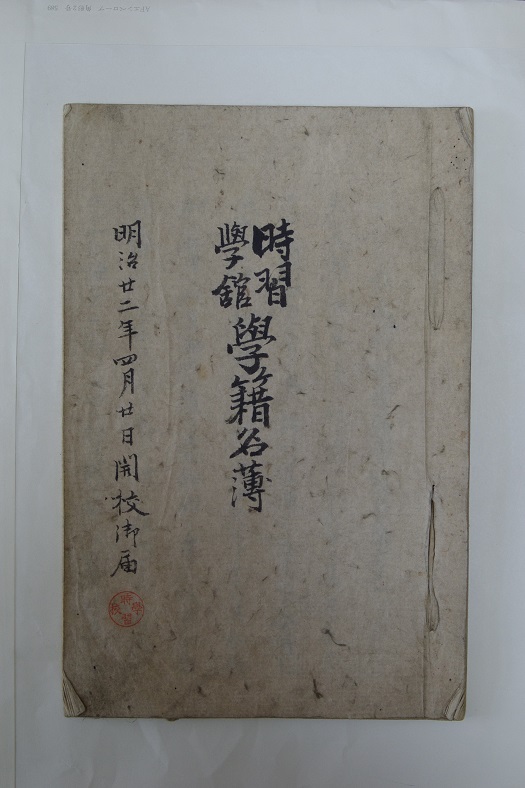 時習
學舘
學籍名薄
明治廿二年四月廿日開校御届